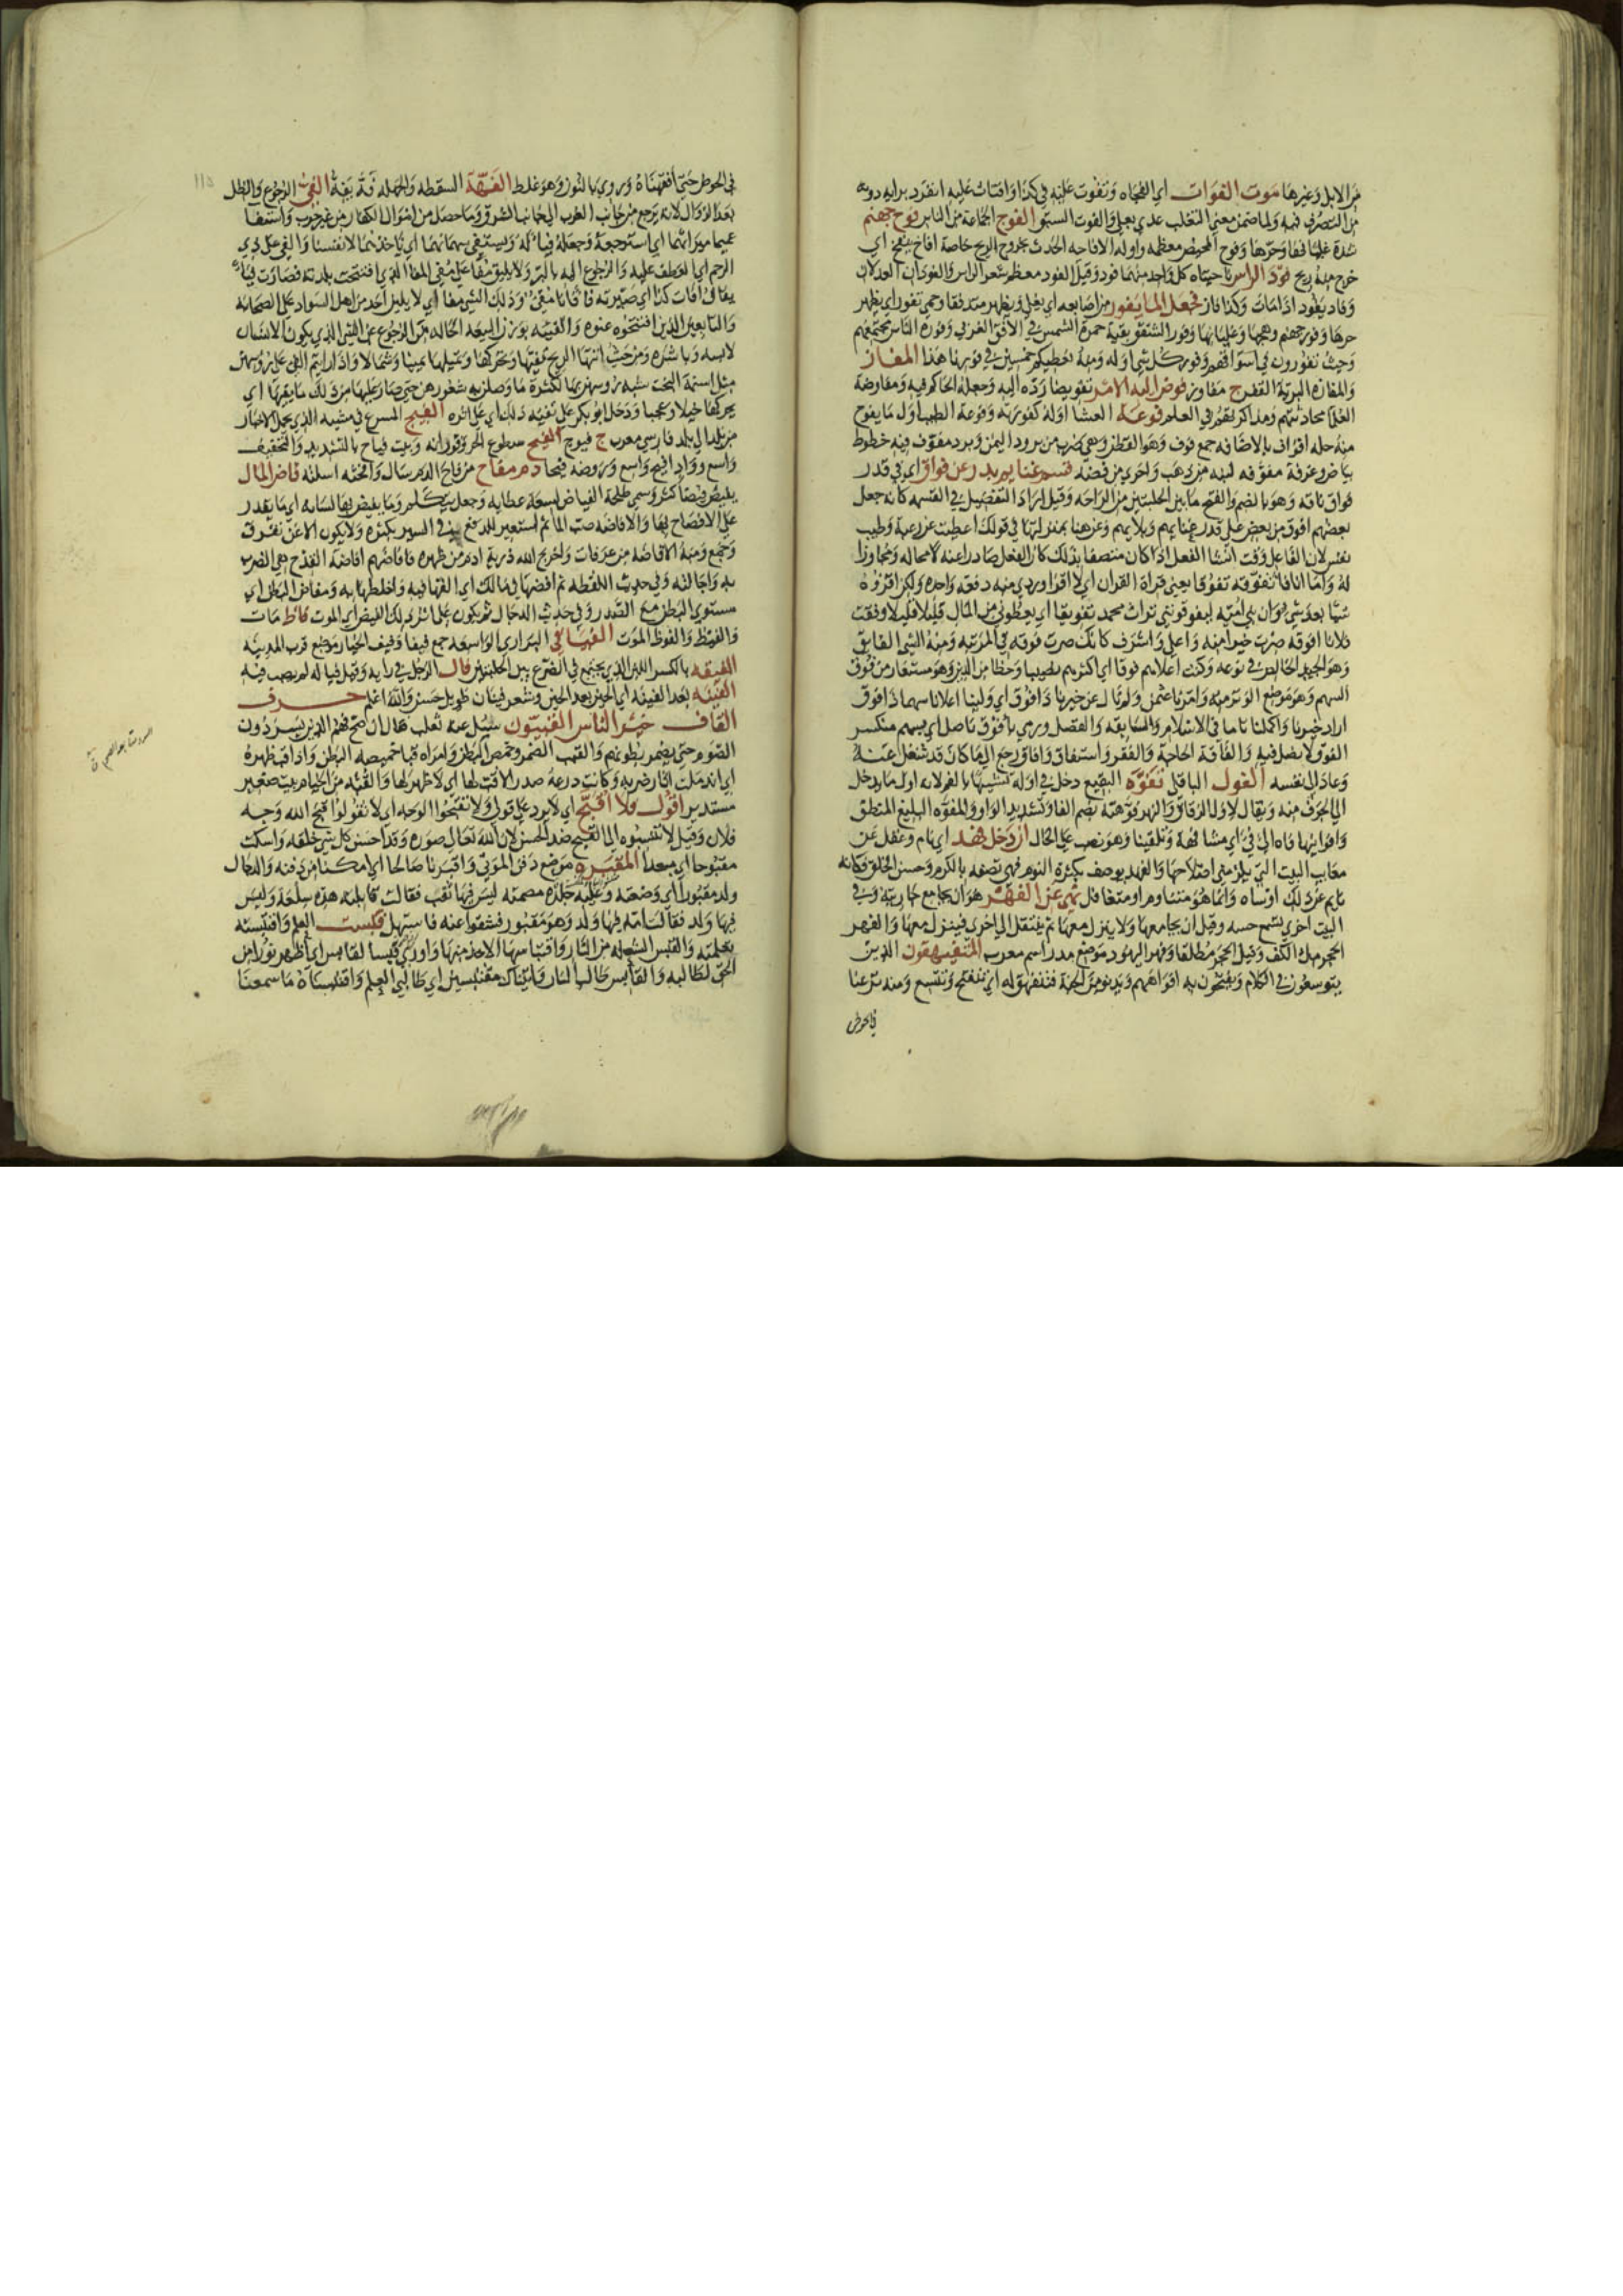 من الابل وغيرها موت الفوات اي الفجاه وتفوت عليه في كذا وافتات عليه انفرد برايه دونه
من التصرف فيه ولما ضمن معني التغلب عدي بعلي والفوت السبق الفوج الجماعة من الناس فوح جهنم
شدة غليانها وحرها وفوح الحيض معظمه واوله الافاحه الحدث بخروج الريح خاصة افاخ يفيخ اي
خرج منه ريح فود الراس ناحيتاه كل واحد منهما فود وقيل الفود معظم شعر الراس والفودان العدلان
وفاد يفود اذا مات وكذا فاز فجعل الما يفور من اصابعه اي يغلي ويظهر متدفقا وحمي تفور اي يظهر
حرها وفور جهنم وهجها وغليانها وفور الشفق بقية حمرة الشمس في الافق الغربي وفورة الناس مجتمعهم
وحيث تفورون في اسواقهم وفور كل شي اوله ومنه نعطيكم خمسين في فورنا هذا المفاز
والمفازه البرية القفر ج مفاوز فوض اليه الامر تفويضا رده اليه وجعله الحاكم فيه ومفاوضة
العلما محادثتهم ومذاكرتهم في العلم فوعة العشا اوله كفورته وفوعة الطيب اول ما يفوح
منه حلة افواف بالاضافه جمع فوف وهو القطن وهي ضرب من برود اليمن وبرد مفوف فيه خطوط
بياض وغرفة مفوفه لبنه من ذهب واخري من فضه قسم غنايم بدر عن فواق اي في قدر
فواق ناقه وهو بالضم والفتح ما بين الحلبتين من الراحه وقيل اراد التفضيل في القسمه كانه جعل
بعضهم افوق من بعض علي قدر غنايهم وبلايهم وعن هنا بمنزلتها في قولك اعطيت عن رغبة وطيب
نفس لان الفاعل وقت انشا الفعل اذا كان متصفا بذلك كان الفعل صادرا عنه لا محاله ومجاوزا
له واما انا فاتفوقه تفوقا يعني قراة القران اي لا اقرا وردي منه دفعة واحده ولكن اقروه
شيا بعد شي وان بني امية ليفوقونني تراث محمد تفويقا اي يعطوني من المال قليلا قليلا وفقت
فلانا افوقه صرت خيرا منه واعلي واشرف كانك صرت فوقه في المرتبه ومنه الشي الفايق
وهو الجيد الخالص في نوعه وكنت اعلاهم فوقا اي اكثرهم نصيبا وحظا من الدين وهو مستعار من فوق
السهم وهو موضع الوتر منه وامرنا عثمن ولم نال عن خيرنا ذا فوق اي ولينا اعلانا سهما ذا فوق
اراد خيرنا واكملنا تاما في الاسلام والسابقه والفضل ورمي بافوق ناصل اي بسهم منكسر
الفوق لا نصل فيه والفاقة الحاجة والفقر واستفاق وافاق رجع الي ما كان قد شغل عنه
وعاد الي نفسه الفول الباقلي تفوه البقيع دخل في اوله تشبيها بالفم لانه اول ما يدخل
الي الجوف منه ويقال لاول الزقاق والنهر فوهته بضم الفا وتشديد الواو والمفوه البليغ المنطق
واقرانيها فاه الي في اي مشافهة وتلقينا وهو نصب علي الحال ان دخل فهد اي نام وغفل عن
معايب البيت التي يلزمني اصلاحها والفهد يوصف بكثرة النوم فهي تصفه بالكرم وحسن الخلق فكانه
نايم عن ذلك او ساه وانما هو متناوم او متغافل نهي عن الفهر هو ان يجامع جاريته وفي
البيت اخري تسمع حسه وقيل ان يجامعها ولا ينزل معها ثم ينتقل الي اخري فينزل معها والفهر
الحجر مل الكف وقيل الحجر مطلقا وفهر اليهود موضع مدراسهم معرب المتفيهقون الذين
يتوسعون في الكلام ويفتحون به افواههم ويدنو من الجنة فتنفهق له اي تنفتح وتتسع ومنه نزعنا
في الحوض
في الحوض حتي افهقناه وروي بالنون وهو غلط الفهة السقطه والجهله فة يفه الفي الرجوع والظل
بعد الزوال لانه يرجع من جانب الغرب الي جانب الشرق وما حصل من اموال الكفار من غير حرب واستفا
عمهما ميراثهما اي استرجعه وجعله فيا له وليستفي سهمانهما اي ياخذ منها لانفسنا والفي علي ذي
الرحم اي العطف عليه والرجوع اليه بالبر ولا يلين مفا علي مفي المفا الذي افتتحت بلدته فصارت فيا
يقال افات كذا اي صيرته فيا فانا مفي وذلك الشي مفا اي لا يلين احد من اهل السواد علي الصحابه
والتابعين الذين افتتحوه عنوه والفيئه بوزن البيعه الحاله من الرجوع عن الشي الذي يكون الانسان
لابسه وباشره ومن حيث اتتها الريح تفيئها وتحركها وتميلها يمينا وشمالا واذا رايتم الفي علي رؤسهن
مثل اسنمة البخت شبه رؤسهن بها لكثرة ما وصلن به شعورهن حتي صار عليها من ذلك ما يفيئها اي
يحركها خيلا وعجبا ودخل ابو بكر علي تفيئه ذلك اي علي اثره الفيج المسرع في مشيه الذي يحمل الاخبار
من بلد الي بلد فارسي معرب ج فيوج الفيح سطوع الحر وفورانه وبيت فياح بالتشديد والتخفيف
واسع وواد افيح واسع وروضه فيحا دم مفاح من فاح الدم سال وافحته اسلته فاض المال
يفيض فيضا كثر وسمي طلحة الفياض لسعة عطايه وجعل يتكلم وما يفيض بها لسانه اي ما يقدر
علي الافصاح بها والافاضه صب الما ثم استعير للدفع في السير بكثره ولا يكون الا عن تفرق
وجمع ومنه الافاضه من عرفات واخرج الله ذرية ادم من ظهره فافاضهم افاضة القدح هي الضرب
به واجالته وفي حديث اللقطه ثم افضها في مالك اي القها فيه واخلطها به ومفاض البطن اي
مستوي البطن مع الصدر وفي حديث الدجال ثم يكون علي اثر ذلك الفيض اي الموت فاظ مات
والفيظ والفوظ الموت الفيافي البراري الواسعه جمع فيفا وفيف الخيار موضع قرب المدينه
الفيقه بالكسر اللبن الذي يجتمع في الضرع بين الحلبتين فال الرجل في رايه وفيل فياله لم يصب فيه
الفينه بعد الفينه اي الحين بعد الحين وشعر فينان طويل حسن والله اعلم حرف
القاف خير الناس القبيون سئل عنه ثعلب فقال ان صح فهم الذين يسردون
الصوم حتي تضمر بطونهم والقبب الضمر وخمص البطن وامراه قبا خميصه البطن واذا قب ظهره
اي اندملت اثار ضربه وكانت درعه صدرا لا قب لها اي لا ظهر لها والقبه من الخيام بيت صغير
مستدير اقول ولا اقبح اي لا يرد علي قولي ولا تقبحوا الوجه اي لا تقولوا قبح الله وجه
فلان وقيل لا تنسبوه الي القبح ضد الحسن لان الله تعالي صوره وقد احسن كل شي خلقه واسكت
مقبوحا اي مبعدا المقبره موضع دفن الموتي واقبرنا صالحا اي امكنا من دفنه والدجال
ولد مقبورا اي وضعته وعليه جلده مصمته ليس فيها نقب فقالت قابلته هذه سلعة وليس
فيها ولد فقالت امه فيها ولد وهو مقبور فشقوا عنه فاستهل قبست العلم واقتبسته
تعلمته والقبس الشعله من النار واقتباسها الاخذ منها واوري قبسا لقابس اي اظهر نورا من
الحق لطالبه والقابس طالب النار واتيناك مقتبسين اي طالبي العلم واقتبسناه ما سمعنا